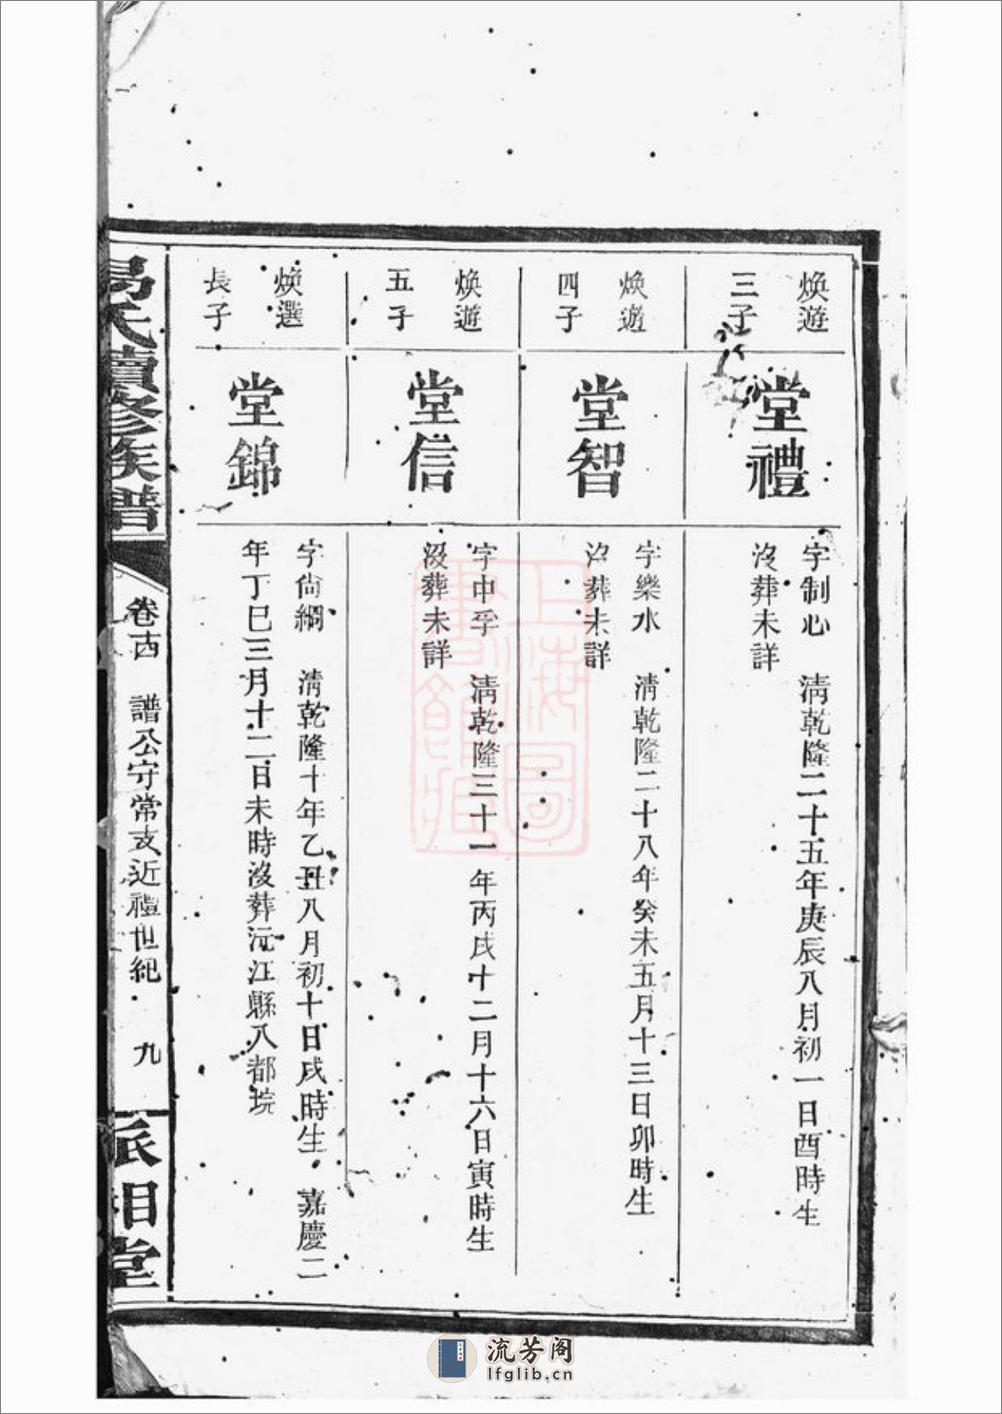 煥遊
三子
堂禮
字制心　清乾隆二十五年庚辰八月初一日酉時生
沒葬未詳
煥遊
四子
堂智
字樂水　清乾隆二十八年癸未五月十三日卯時生
沒葬未詳
煥遊
五子
堂信
字中孚　清乾隆三十一年丙戌十二月十六日寅時生
沒葬未詳
煥選
長子
堂錦
字尙綱　清乾隆十年乙丑八月初十日戌時生　嘉慶二
年丁巳三月十二日未時沒葬沅江縣八都垸
易氏續修族譜
卷十四　譜公守常支近禮世紀　九
相堂
上海圖書館藏
流芳阁
lfglib.cn